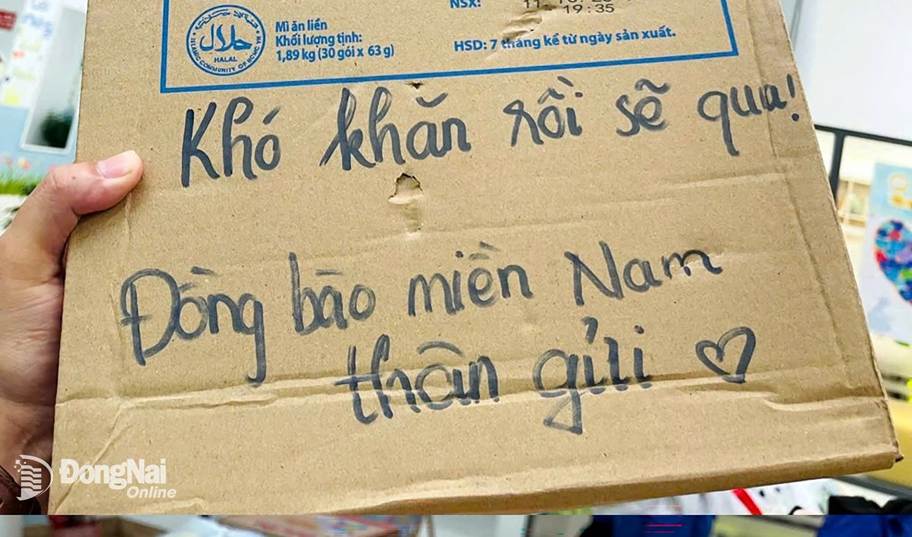 NSX:
19:35
Mì ăn liền
Khối lượng tịnh:
1,89 kg (30 gói x 63 g)
HALAL
HSD: 7 tháng kể từ ngày sản xuất.
Khó khăn rồi sẽ qua!
Đồng bào miền Nam
thân gửi ♡
ĐồngNai
Online